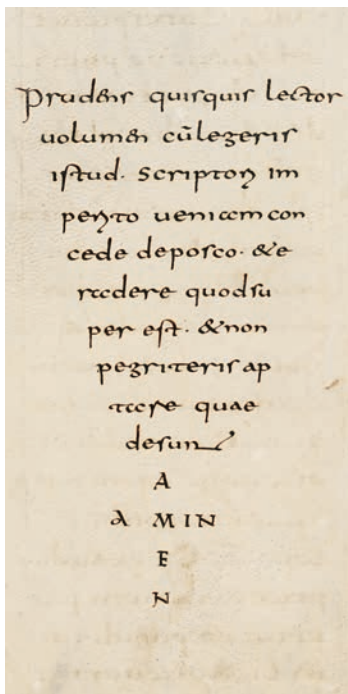 prudens quisquis lector
uolumen cūlegeris
istud. Scriptori im
perito ueniam con
cede deposco. &e
radere quodsu
per est. &non
pegriteris ap
tare quae
desunt
A
A MIN
E
N